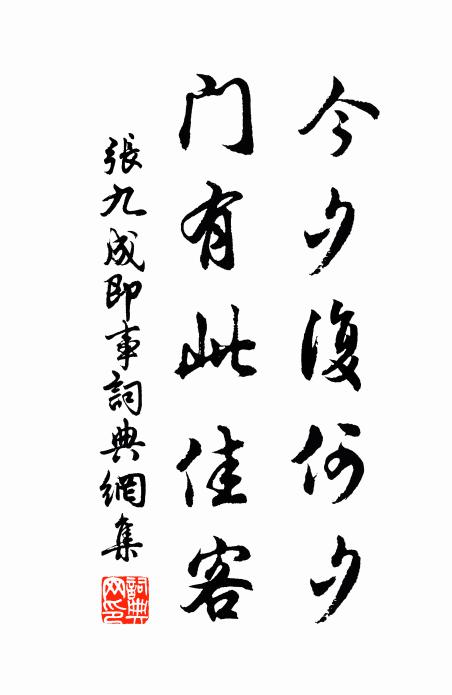 今夕復何夕
门有此佳客
張九成即事詞典網集
詞典网印